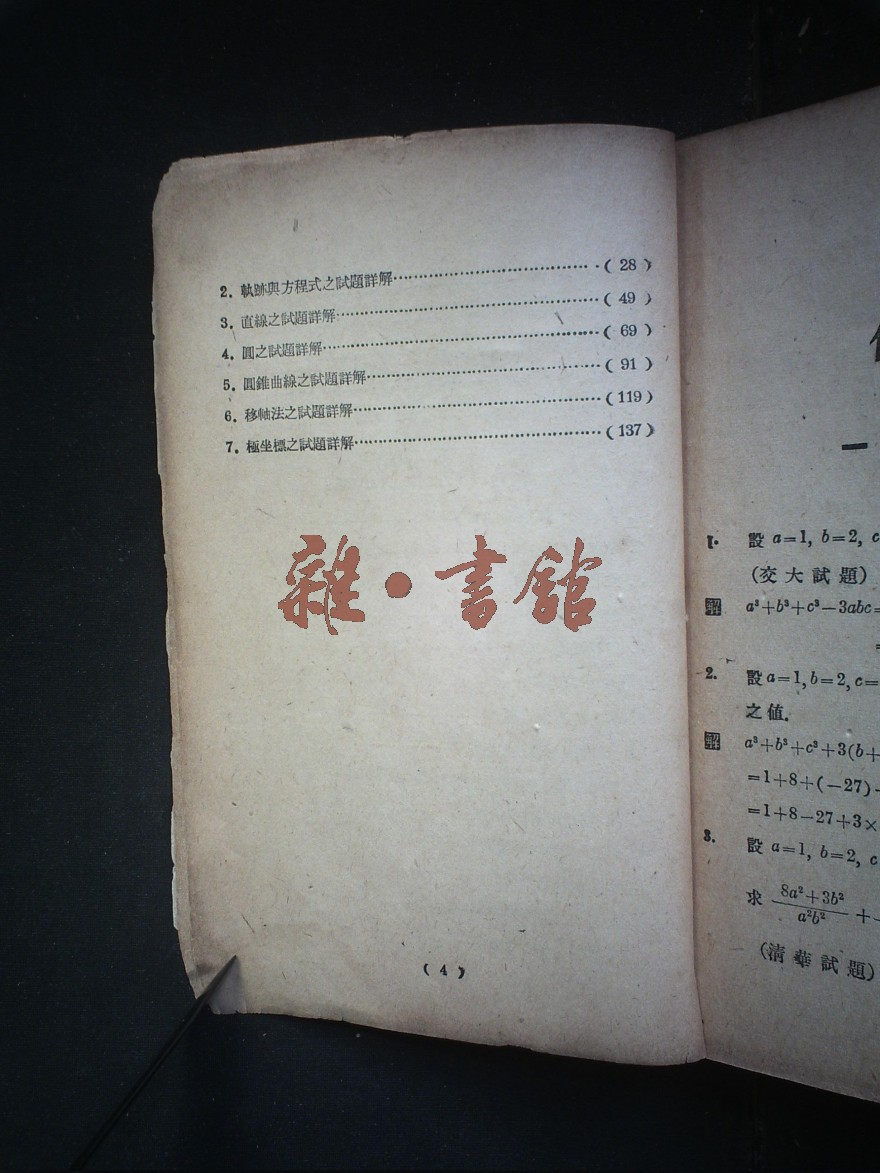 2. 軌跡與方程式之試題詳解……………………………( 28 )
3. 直線之試題詳解……………………………………( 49 )
4. 圓之試題詳解………………………………………( 69 )
5. 圓錐曲線之試題詳解………………………………( 91 )
6. 移軸法之試題詳解…………………………………( 119 )
7. 極坐標之試題詳解…………………………………( 137 )
雜·書館
( 4 )
一
1. 設 a=1, b=2, c
(交大試題)
解 a³+b³+c³−3abc=
=
2. 設 a=1, b=2, c=
之值.
解 a³+b³+c³+3(b+
=1+8+(−27)
=1+8−27+3×
3. 設 a=1, b=2, c
求 8a²+3b² / a²b² +
(清華試題)